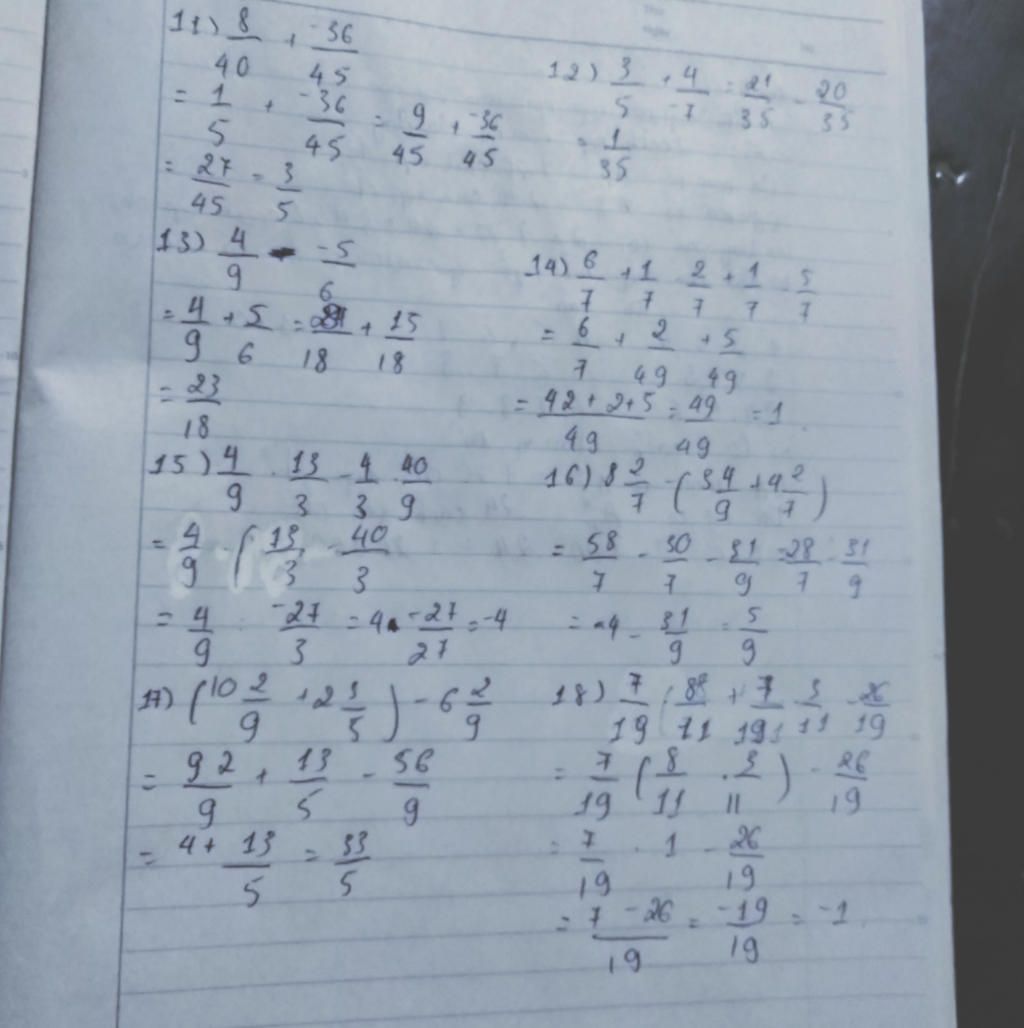 11) 8/40 + -36/45
= 1/5 + -36/45 = 9/45 + -36/45
= 27/45 = 3/5
12) 3/5 + 4/-7 = 21/35 - 20/35
= 1/35
13) 4/9 - -5/6
= 4/9 + 5/6 = 18 + 15/18
= 23/18
14) 6/7 + 1/7 2/7 + 1/7 5/7
= 6/7 + 2/49 + 5/49
= 42 + 2 + 5/49 = 49/49 = 1
15) 4/9 . 13/3 - 4/3 . 40/9
= 4/9 . ( 13/3 - 40/3
= 4/9 . -27/3 = 4 . -27/27 = -4
16) 8 2/7 - ( 3 4/9 + 4 2/7 )
= 58/7 - 30/7 - 31/9 = 28/7 - 31/9
= 4 - 31/9 = 5/9
17) ( 10 2/9 + 2 3/5 ) - 6 2/9
= 92/9 + 13/5 - 56/9
= 4 + 13/5 = 33/5
18) 7/19 . 8/11 + 7/19 3/11 - 26/19
= 7/19 ( 8/11 . 3/11 ) - 26/19
= 7/19 . 1 - 26/19
= 7 - 26/19 = -19/19 = -1